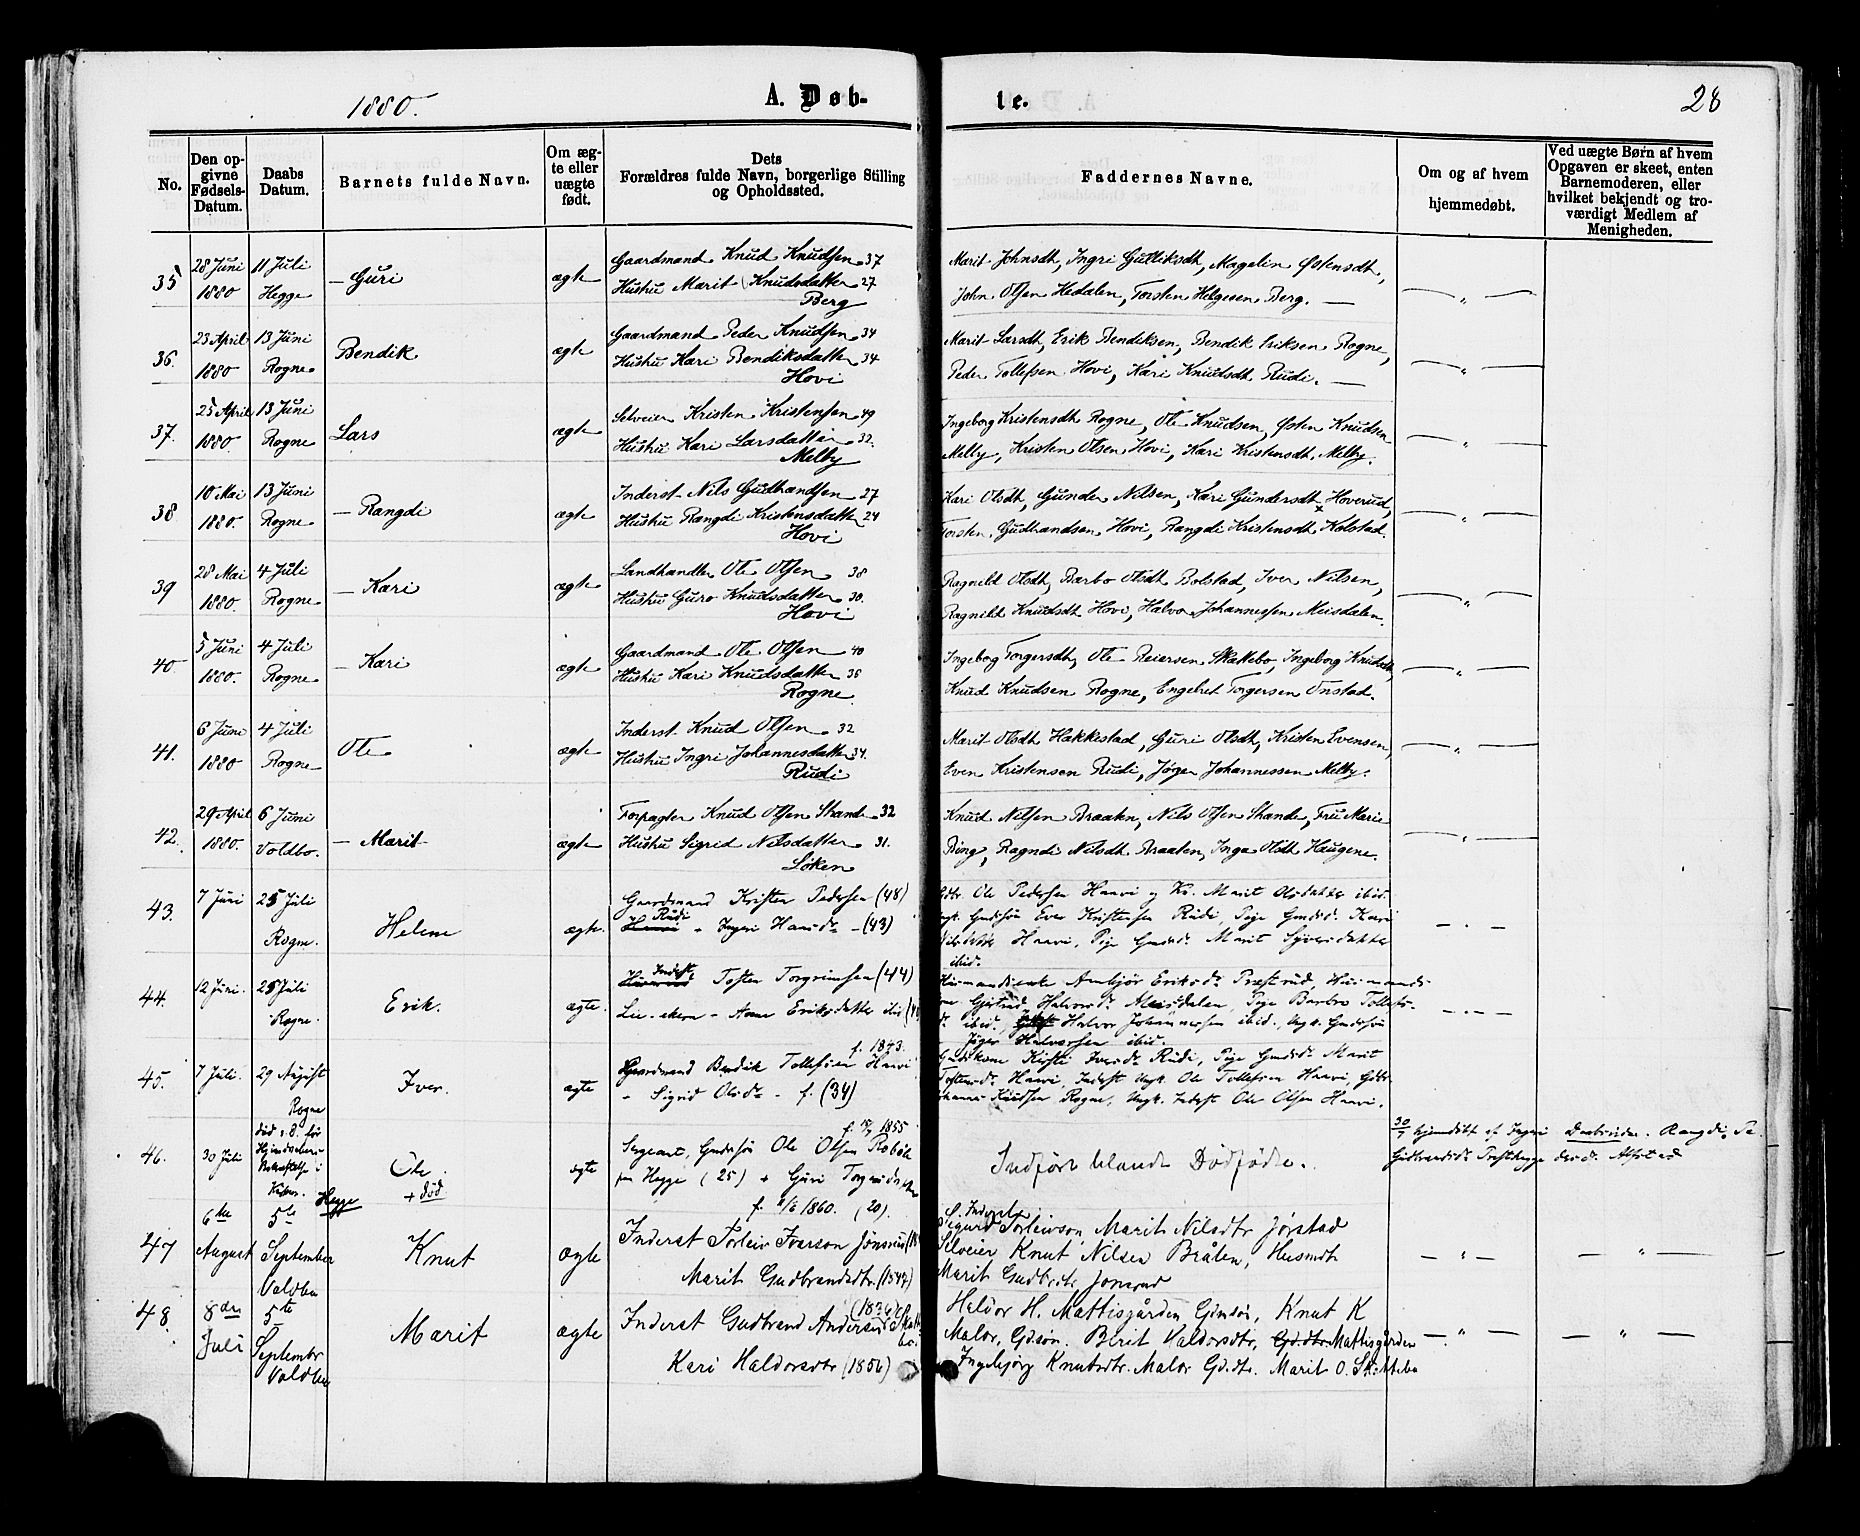 1880.
A. Døb-
te.
28
No.
Den op-
givne
Fødsels-
Datum.
Daabs
Datum.
Barnets fulde Navn.
Om æg-
te eller
uægte
født.
Dets
Forældres fulde Navn, borgerlige Stilling
og Opholdssted.
Faddernes Navne.
Om og af hvem
hjemmedøbt.
Ved uægte Børn af hvem
Opgaven er skeet, enten
Barnemoderen, eller
hvilket bekjendt og tro-
værdigt Medlem af
Menigheden.
35
28 Juni
1880
11 Juli
Hegge
— Guri
ægte
Gaardmand Knud Knudsen 37
Hustru Marit Knudsdatter 27
Berg
Marit Johnsdt, Ingri Gulliksdt, Magelin Østensdt,
John Olsen Hedalen, Torsten Helgesen Berg. —
— " —
36.
23 April
1880
13 Juni
Rogne
Bendik
ægte
Gaardmand Peder Knudsen 34
Hustru Kari Bendiksdatter 34
Hovi
Marit Larsdt, Erik Bendiksen, Bendik Eriksen Rogne,
Peder Tollefsen Hovi, Kari Knudsdt Rudi. —
— " —
37.
25 April
1880.
13 Juni
Rogne
Lars
ægte
Selveier Kristen Kristensen 49
Hustru Kari Larsdatter 32.
Melby
Ingeborg Kristensdt Rogne, Ole Knudsen, Østen Knudsen
Melby, Kristen Olsen Hovi, Kari Kristensdt. Melby.
— " —
38
10 Mai
1880.
13 Juni
Rogne
— Rangdi
ægte
Inderst Nils Gudbrandsen 27
Hustru Rangdi Kristensdatter 24
Hovi
Kari Olsdt, Gunder Nilsen, Kari Gundersdt Hoverud,
Torsten Gudbrandsen Hovi, Rangdi Kristensdt Kolstad.
— " —
39
28 Mai
1880.
4 Juli
Rogne
— Kari
ægte
Landhandler Ole Olsen 38
Hustru Guro Knudsdatter 30.
Hovi
Ragnild Olsdt, Barbo Olsdt Bolstad, Iver Nilsen,
Ragnild Knudsdt Hovi, Halvor Johannessen Meisdalen.
— " —
40
5 Juni
1880.
4 Juli
Rogne
— Kari
ægte
Gaardmand Ole Olsen 40
Hustru Kari Knudsdatter 36
Rogne.
Ingeborg Torgersdt, Ole Reiersen Skattebo, Ingeborg Knudsdt,
Knud Knudsen Rogne, Engebret Torgersen Onstad.
— " —
41.
6 Juni
1880
4 Juli
Rogne
Ole
ægte
Inderst Knud Olsen 32
Hustru Ingri Johannesdatter 34.
Rudi
Marit Olsdt Hakkestad, Guri Olsdt, Kristen Evensen,
Even Kristensen Rudi, Jøger Johannessen Melby.
— " —
42.
29 April
1880.
6 Juni
Voldbo.
— Marit
ægte
Forpagter Knud Olsen Strande 32
Hustru Sigrid Nilsdatter 31.
Løken
Knud Nilsen Braaten, Nils Olsen Strande, Fru Marie
Ring, Ragndi Nilsdt. Braaten, Inga Olsdt Haugene.
— " —
43.
7 Juni
25 Juli
Rogne.
Helene
ægte.
Gaardmand Kristen Pedersen (48)
Rudi
- Ingeri Hansd. - (43)
Ole Pedersen Haavi og Ko. Marit Olsdatter ibid.
Gudesøn Even Kristensen Rudi, Pige Gmdsd. Kari
Haavi, Pige Gmdsd. Marit Syversdatter
ibid.
— . —
44.
12 Juni.
25 Juli
Rogne.
Erik.
ægte.
Inderst Tosten Torgrimsen (44)
Lie-eiern - Anne Eriksdatter ibid
Husmandsenke Ambjør Eriksd. Præstrud, Husmands-
Gjertrud Halvorsd. Meisdalen, Pige Barbro Tollefs-
d. ibid., Halvor Johannessen ibid., Ungk. Gmdesøn
Jøger Halvorsen ibid.
— . —
45.
7 Juli.
29 August
Rogne
Iver.
ægte
f. 1843.
Gaardmand Bendik Tollefsen Haavi
- Sigrid Olsd. - f. (34)
Gudekone Kirsti Iversd. Rudi, Pige Gmdsd. Marit
Tostensd. Haavi, Inderst Ungk. Ole Tollefsen Haavi,
Johannes Knudsen Rogne, Ungk. Inderst Ole Olsen Haavi.
46.
30 Juli
død før
Kirken.
Hegge
Ole
+ død.
ægte
1855
Sergeant, Gmdesøn Ole Olsen Robøle
paa Hegge (25) + Guri
f. 1860. (20).
Indført blandt Dødfødte.
30/7 hjemdøbt af Ingri
Gudbrandsd. Præsthegge
47
6te
August
5te
September
Voldbu
Knut
ægte
Inderst Torleiv Ivarson Jonsrud
Marit Gudbrandsdtr. (1847)
Sigurd Torleivson, Marit Nilsdtr Jørstad
Selveier Knut Nilsen Bråten, Husmdt
Marit Gudbrdtr Jonsrud
— " —
— " —
48.
8de
Juli
5te
September
Voldbu
Marit
ægte
Inderst Gudbrand Andersen Skatte
bo.
Kari Haldorsdtr (1856)
Haldor H. Mattisgården, Gmdsøn, Knut K
Malor, Gdsøn. Berit Haldorsdtr, Gd.dtr. Mattisgården
Ingebjørg Knutsdtr. Malor Gd.dtr. Marit O. Skattebo
— " —
— " —